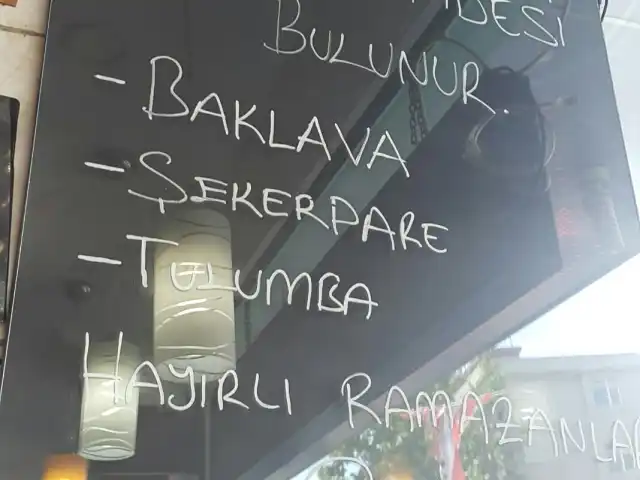 BULUNUR.
- BAKLAVA
- ŞEKERPARE
- TULUMBA
HAYIRLI RAMAZANLAR